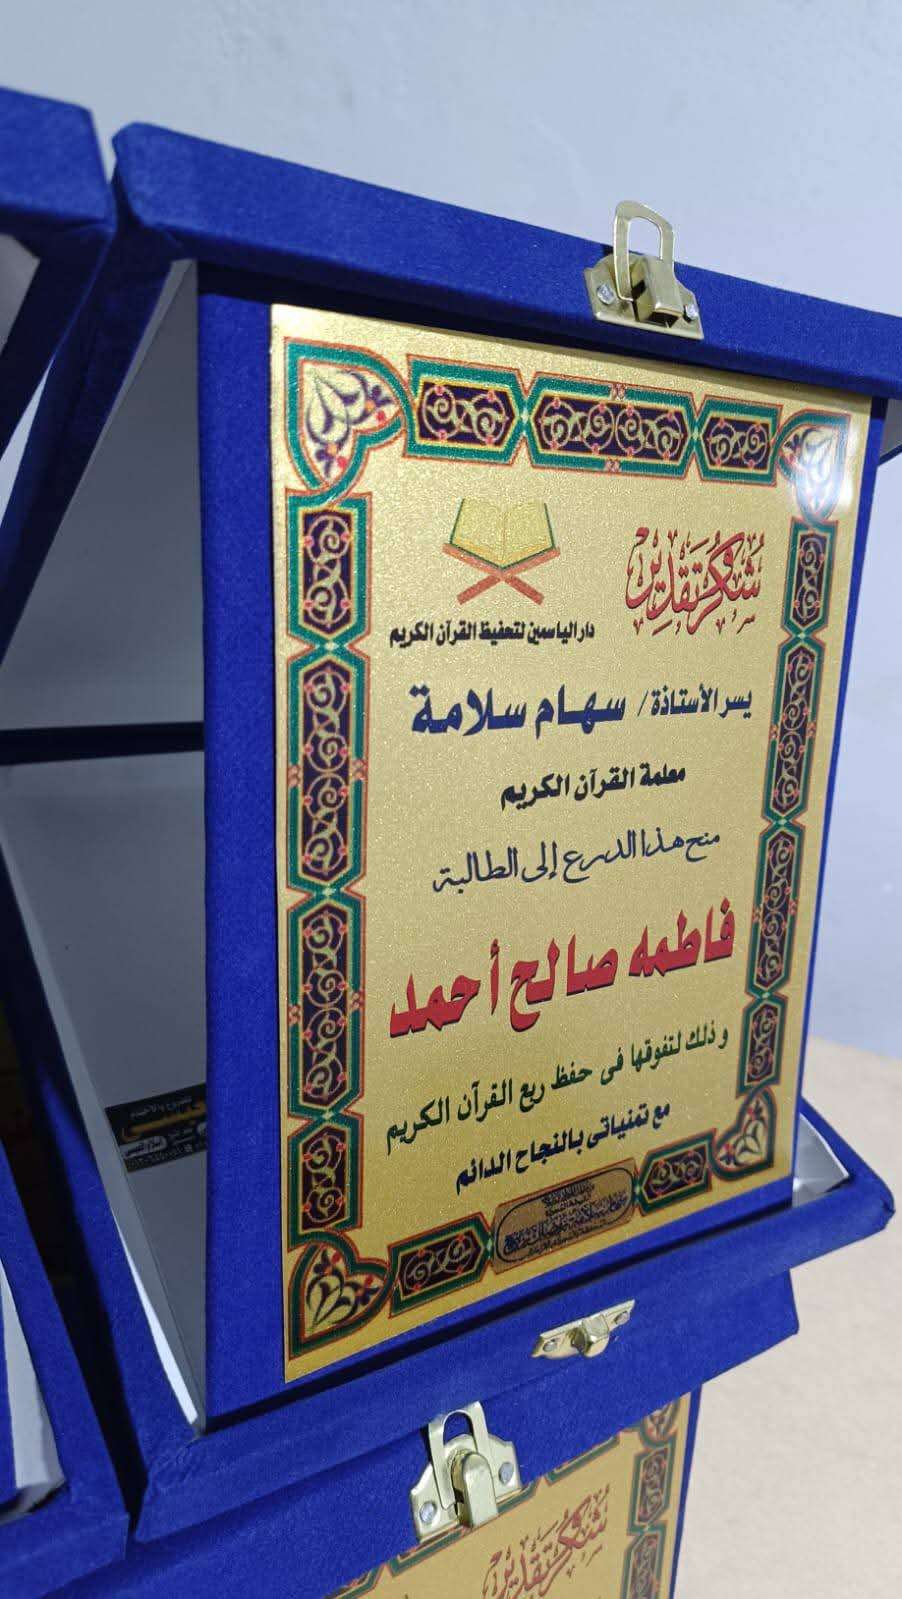 شكر وتقدير
دار الياسمين لتحفيظ القرآن الكريم
يسر الأستاذة / سهام سلامة
معلمة القرآن الكريم
منح هذا الدرع إلى الطالبة
فاطمه صالح أحمد
و ذلك لتفوقها فى حفظ ربع القرآن الكريم
مع تمنياتى بالنجاح الدائم
شكر وتقدير